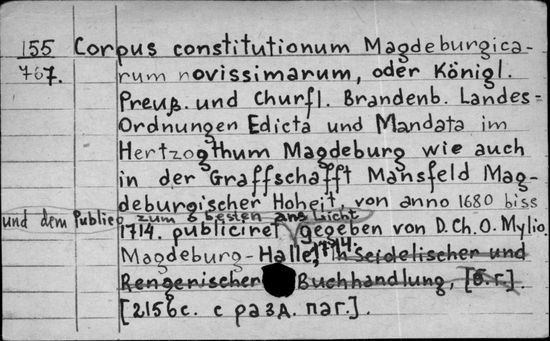 155 Corpus constitutionum Magdeburgica-
767. rum novissimarum, oder Königl.
Preuß. und Churfl. Brandenb. Landes=
Ordnungen Edicta und Mandata im
Hertzogthum Magdeburg wie auch
in der Graffschafft Mansfeld Mag-
deburgischer Hoheit, von anno 1680 biss
und dem Publico zum besten ans Licht
1714. publiciret gegeben von D. Ch. O. Mylio.
Magdeburg-Halle, 1714. in Seidelischer und
Rengerischer Buchhandlung, [б.г.].
[2156 с. с разд. паг.].